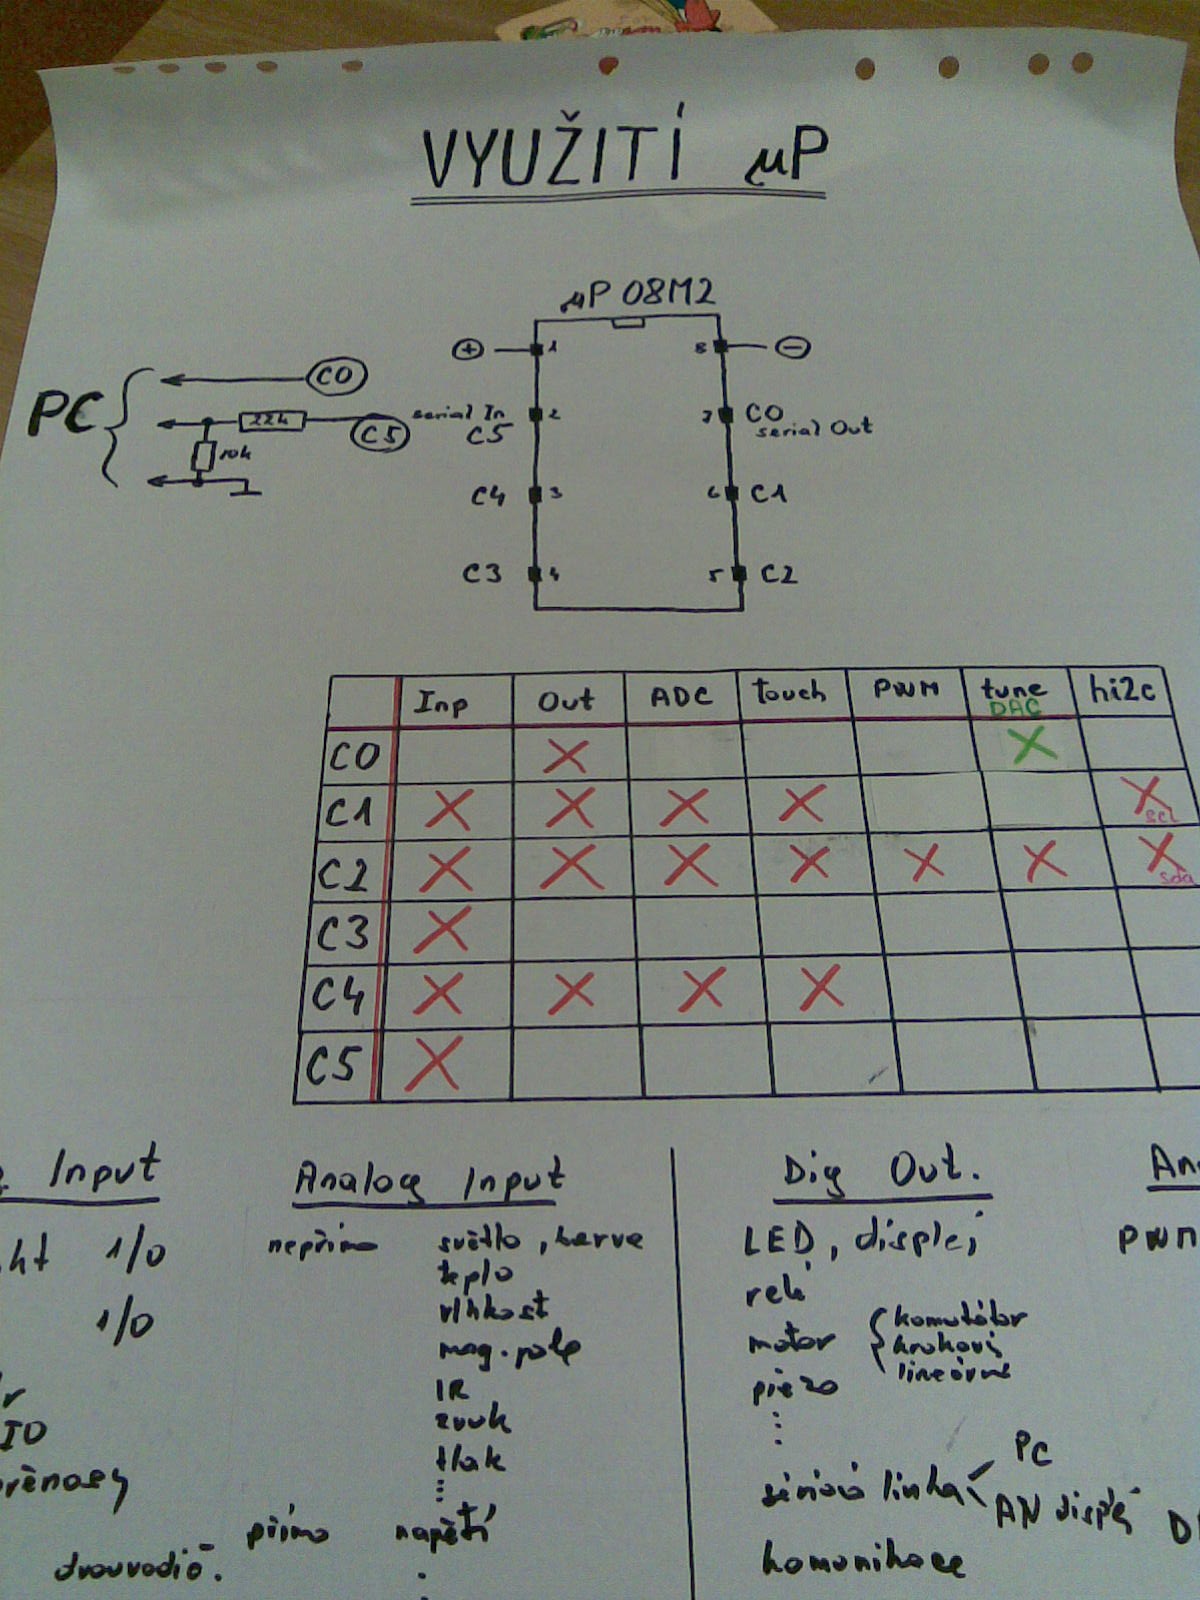 VYUŽITÍ µP
µP 08M2
+ 1 8 −
PC C0
22k C5
10k
serial In 2 7 C0
C5 serial Out
C4 3 6 C1
C3 4 5 C2
Inp Out ADC touch PWM tune hi2c
DAC
C0 X X
C1 X X X X X scl
C2 X X X X X X X sda
C3 X
C4 X X X X
C5 X
Input
1/0
1/0
Analog Input
nepřímo světlo, barva
teplo
vlhkost
mag. pole
IR
zvuk
tlak
přímo napětí
dvouvodič.
Dig Out.
LED, displej
relé
motor komutátor
krokový
lineární
piezo
sériová linka PC
AN displej
komunikace
PWM